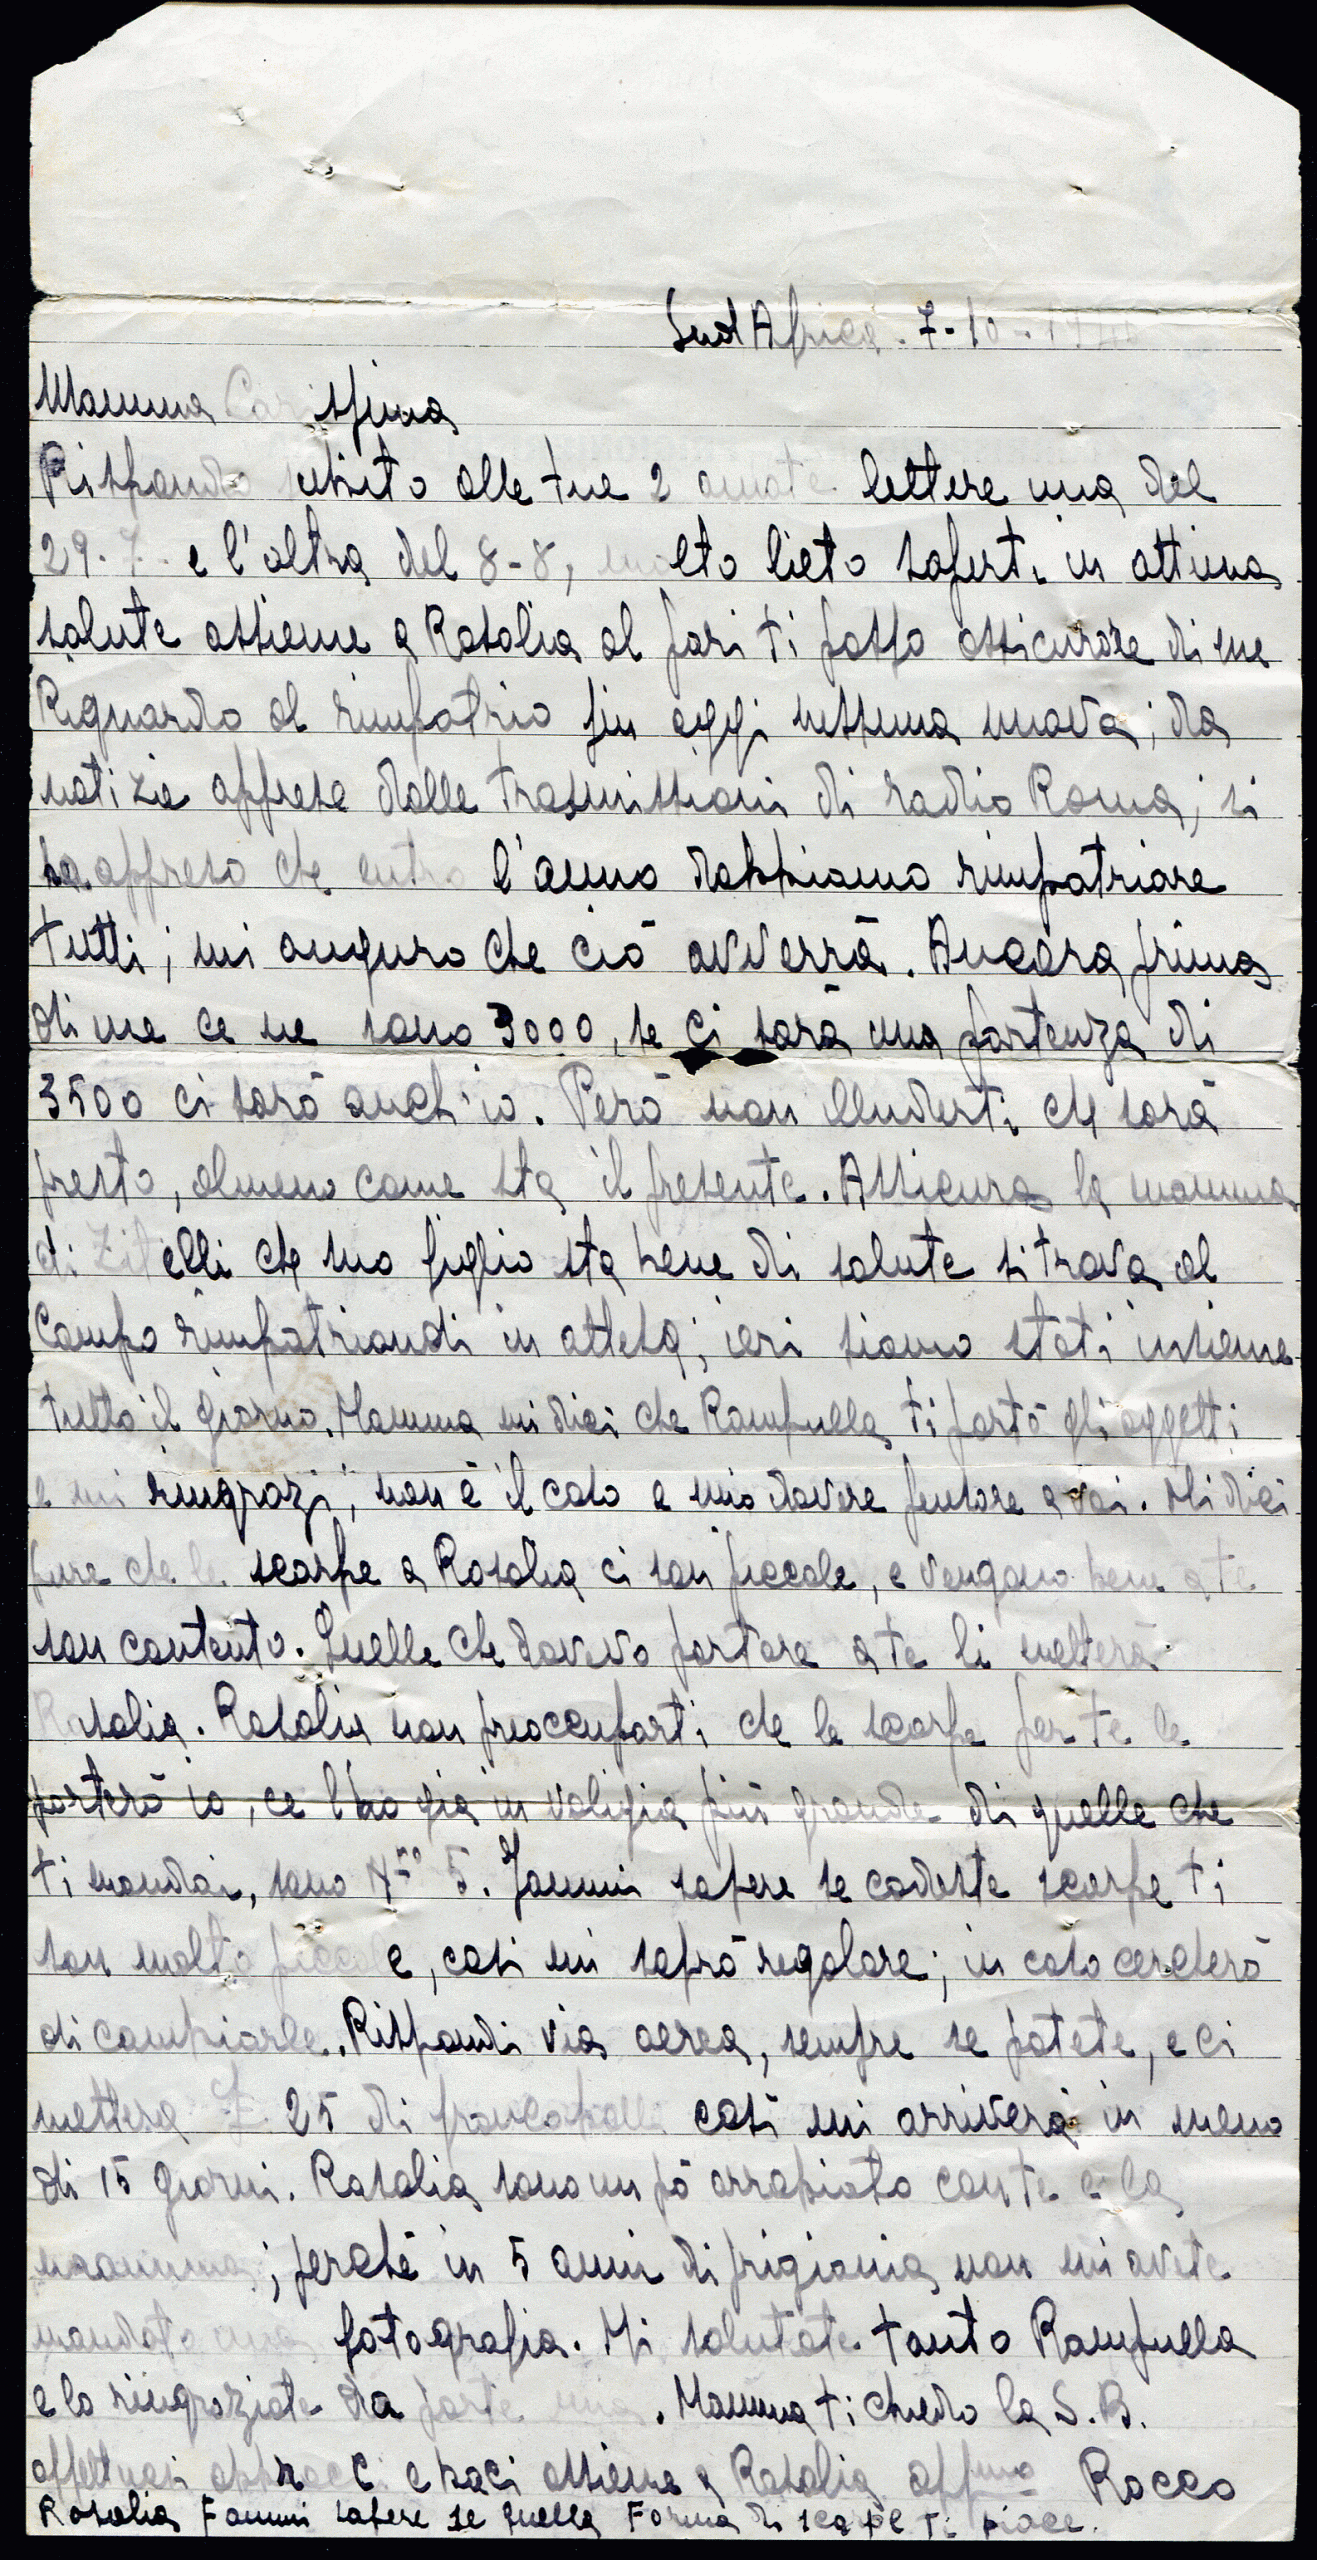 Sud Africa. 7-10-194
Mamma Carissima
Rispondo subito alle tue 2 amate lettere una del
29-7- e l'altra del 8-8, molto lieto saperti in ottima
salute assieme a Rosalia al pari ti posso assicurare di me
Riguardo al rimpatrio fin oggi nessuna nuova; da
notizie apprese dalle trasmissioni di radio Roma, si
ha appreso che entro l'anno dobbiamo rimpatriare
tutti; mi auguro che ciò avverrà. Ancora prima
di me ce ne sono 3000, se ci sarà una partenza di
3500 ci sarò anch'io. Però non illuderti che sarà
presto, almeno come sta il presente. Assicura la mamma
di Zitelli che suo figlio sta bene di salute si trova al
Campo rimpatriandi in attesa; ieri siamo stati insieme
tutto il giorno. Mamma mi dici che Rampulla ti portò gli oggetti
e mi ringrazi; non è il caso e mio dovere pensare a voi. Mi dici
pure che le scarpe a Rosalia ci son piccole, e vengono bene a te
son contento. Quelle che dovevo portare a te li metterà
Rosalia. Rosalia non preoccuparti che le scarpe per te le
porterò io, ce l'ho già in valigia più grande di quelle che
ti mandai, sono Nro 5. Fammi sapere se codeste scarpe ti
son molto piccole, così mi saprò regolare; in caso cercherò
di cambiarle. Rispondi via aerea, sempre se potete, e ci
mettere £ 25 di francobolli così mi arriverà in meno
di 15 giorni. Rosalia sono un pò arrabiato con te e la
mamma; perchè in 5 anni di prigionia non mi avete
mandato una fotografia. Mi salutate tanto Rampulla
e lo ringraziate da parte mia. Mamma ti chiedo la S.B.
affettuosi abbracci e baci assieme a Rosalia affmo Rocco
Rosalia Fammi sapere se quella Forma di scarpe ti piace.